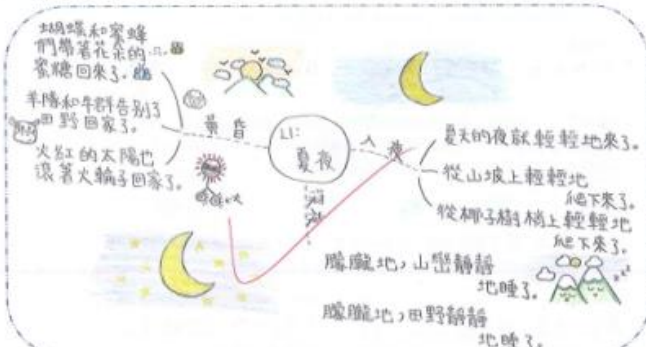 蝴蝶和蜜蜂
們帶著花朵的
蜜糖回來了。
羊隊和牛群告別了
田野回家了。
火紅的太陽也
滾著火輪子回家了。
黃昏
L1:
夏夜
入夜
夏天的夜就輕輕地來了。
從山坡上輕輕地
爬下來了。
從椰子樹梢上輕輕地
爬下來了。
深夜
朦朧地,山巒靜靜
地睡了。
朦朧地,田野靜靜
地睡了。